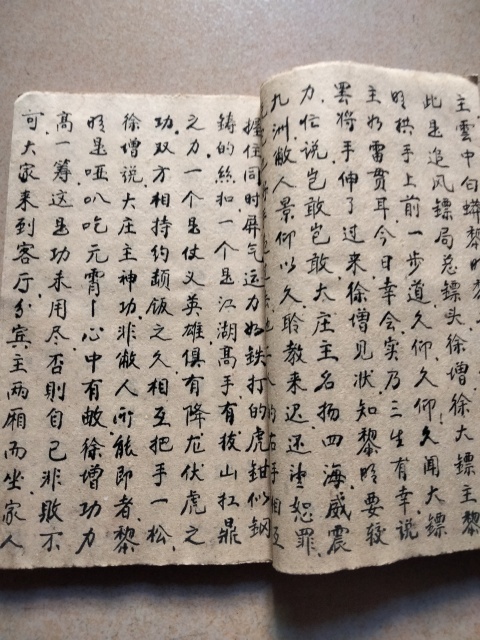 主雲中白蟒黎明黎
此是追风鏢局总鏢头徐增徐大鏢主黎
明拱手上前一步道久仰久仰!久闻大鏢
主如雷貫耳今日幸会实乃三生有幸说
罢将手伸了过来徐增見状知黎明要较
力忙说岂敢岂敢大庄主名扬四海威震
九洲敝人景仰以久聆教来迟还望恕罪
右手相互
握住同时屏气运力如鉄打的虎钳似鋼
鋳的絲扣一个是江湖高手有拔山扛鼎
之力一个是仗义英雄俱有降龙伏虎之
功双方相持约頓饭之久相互把手一松
徐增说大庄主神功非敝人所能即者黎
明是哑叭吃元宵心中有数徐增功力
高一筹这是功未用尽否則自己非敗不
可大家来到客厅分宾主两廂而坐家人